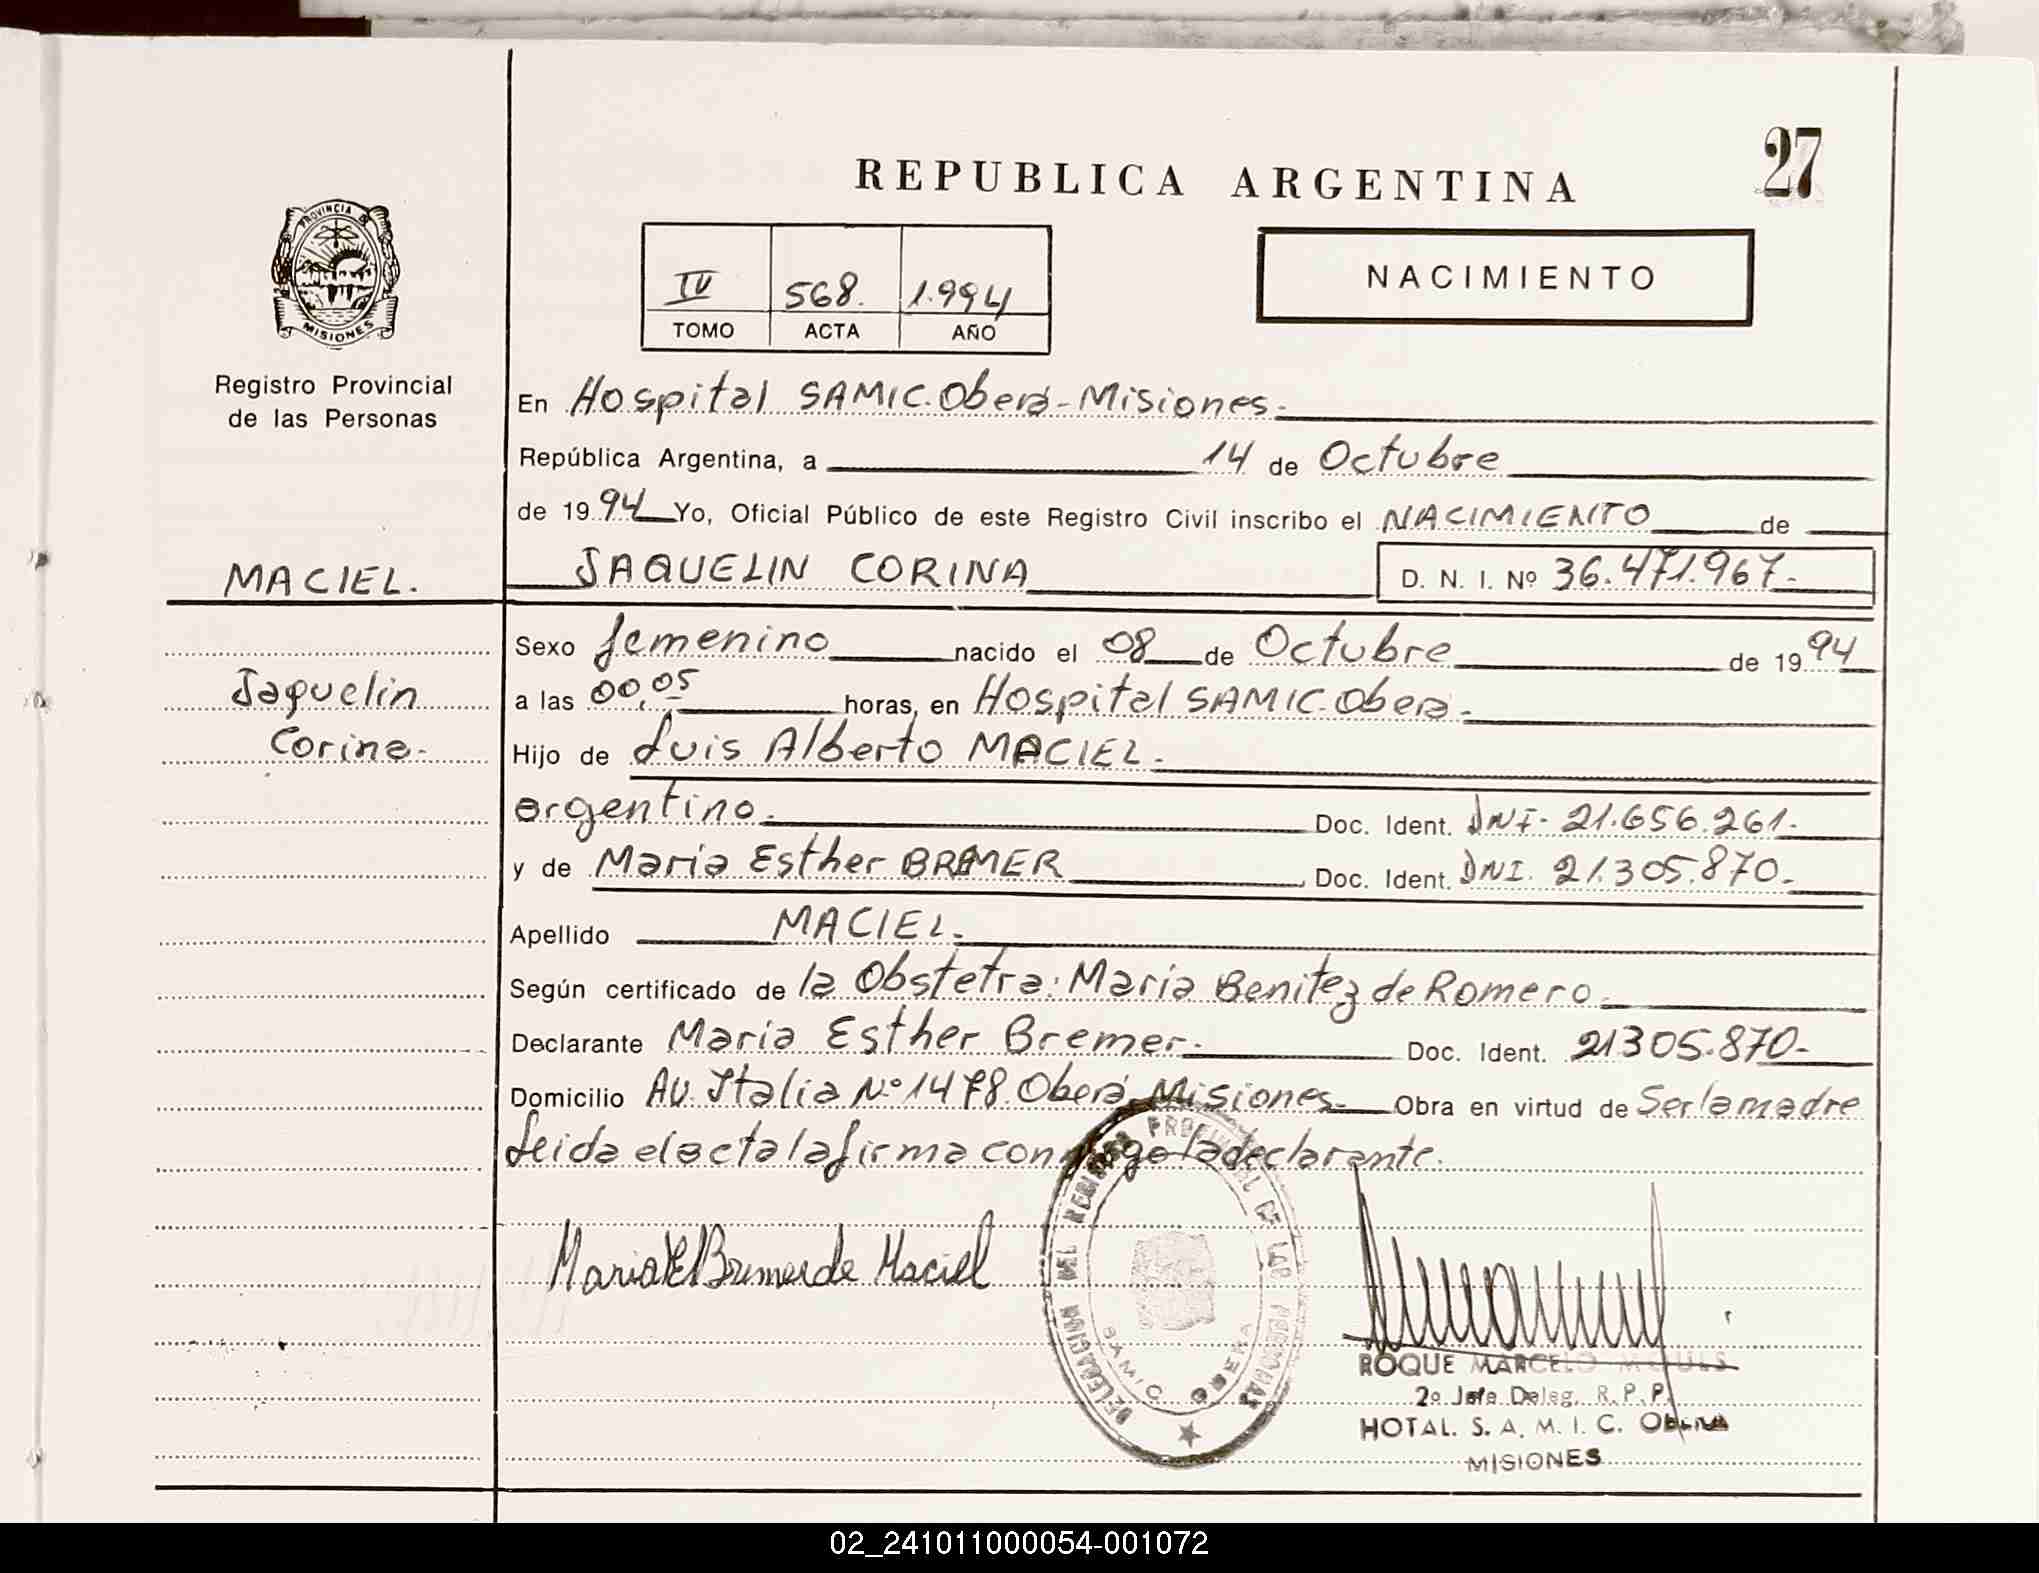 REPUBLICA ARGENTINA
27
PROVINCIA DE
MISIONES
Registro Provincial
de las Personas
IV 568. 1.994
TOMO ACTA AÑO
NACIMIENTO
En Hospital SAMIC. Oberá - Misiones.
República Argentina, a 14 de Octubre
de 1994 Yo, Oficial Público de este Registro Civil inscribo el NACIMIENTO de
MACIEL.
JAQUELIN CORINA D. N. I. Nº 36.471.967.-
Jaquelin
Corina.
Sexo femenino nacido el 08 de Octubre de 1994
a las 00,05 horas, en Hospital SAMIC. Oberá.
Hijo de Luis Alberto MACIEL.
argentino. Doc. Ident. DNI. 21.656.261.
y de Maria Esther BREMER Doc. Ident. DNI. 21.305.870.
Apellido MACIEL.
Según certificado de la Obstetra: Maria Benitez de Romero.
Declarante Maria Esther Bremer. Doc. Ident. 21305.870-
Domicilio Av. Italia Nº 1478. Oberá Misiones Obra en virtud de Ser la madre
Leida el acta la firma conmigo la declarante.
Maria E Bremer de Maciel
DELEGACION DEL REGISTRO PROVINCIAL DE LAS PERSONAS
SAMIC OBERA
ROQUE MARCELO
2º Jefe Deleg. R. P. P.
HOTAL. S. A. M. I. C. OBERA
MISIONES
02_241011000054-001072